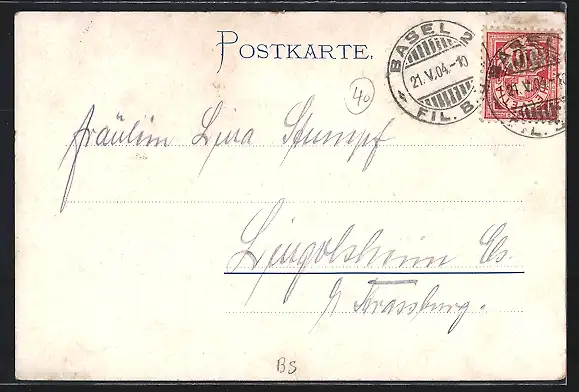 POSTKARTE.
BASEL 2
21.V.04.-10
FIL. B.
40
Fräulein Lina Stumpf
Lingolsheim Els.
b/ Strassburg.
BS